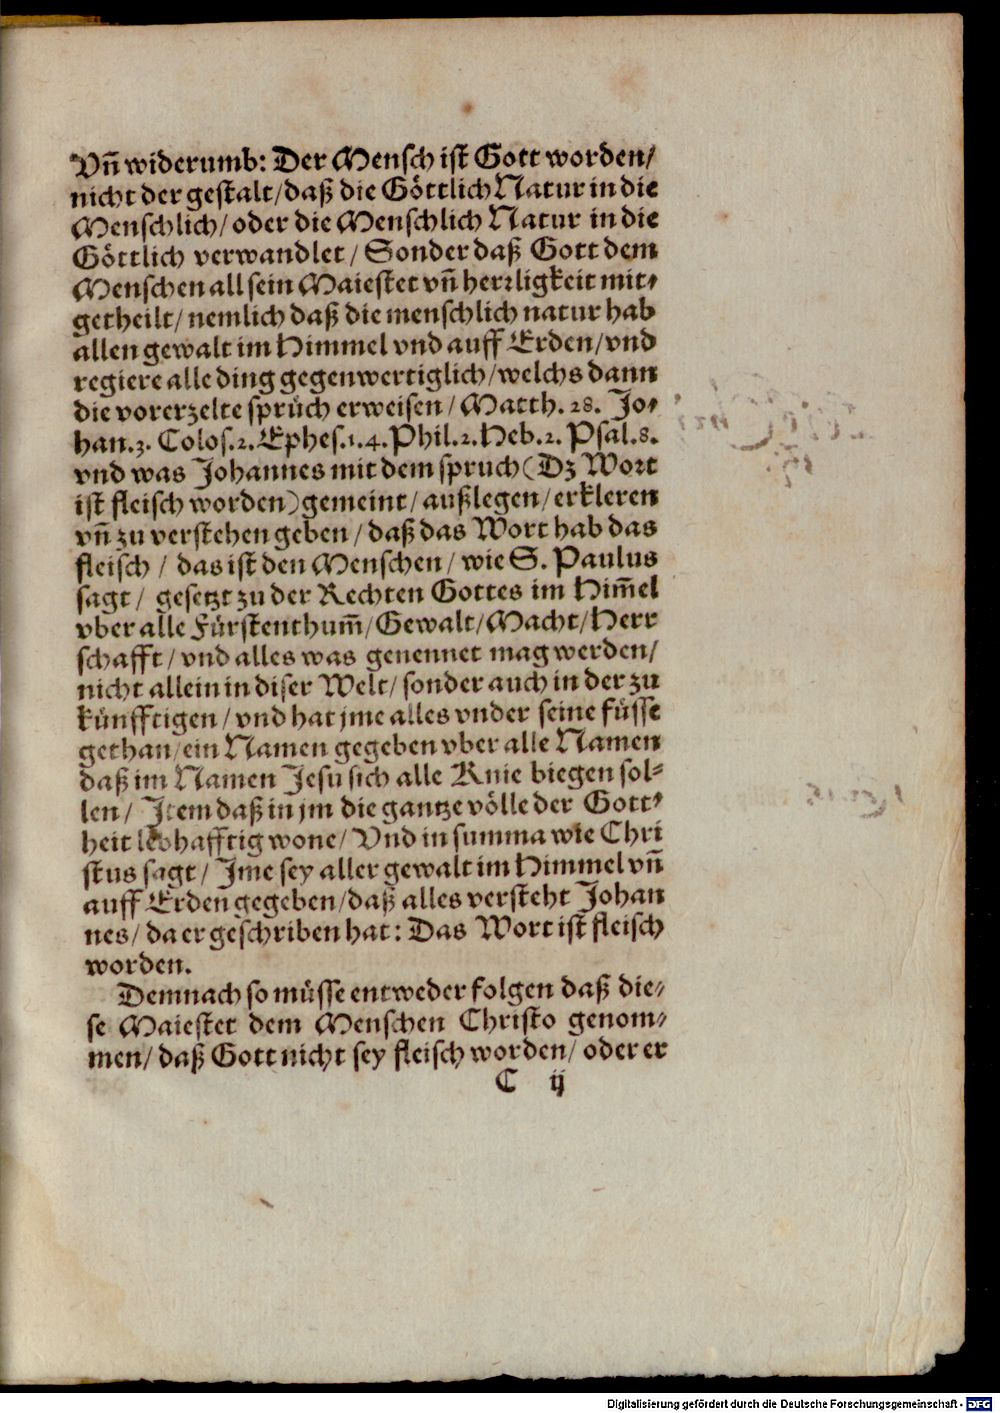 Vñ widerumb: Der Mensch ist Gott worden/
nicht der gestalt/ daß die Göttlich Natur in die
Menschlich/ oder die Menschlich Natur in die
Göttlich verwandlet/ Sonder daß Gott dem
Menschen all sein Maiestet vñ herrligkeit mit⸗
getheilt/ nemlich daß die menschlich natur hab
allen gewalt im Himmel vnd auff Erden/ vnd
regiere alle ding gegenwertiglich/ welchs dann
die vorerzelte sprüch erweisen/ Matth. 28. Jo⸗
han. 3. Colos. 2. Ephes. 1. 4. Phil. 2. Heb. 2. Psal. 8.
vnd was Johannes mit dem spruch (Dz Wort
ist fleisch worden) gemeint/ außlegen/ erkleren
vñ zu verstehen geben/ daß das Wort hab das
fleisch/ das ist den Menschen/ wie S. Paulus
sagt/ gesetzt zu der Rechten Gottes im Him̃el
vber alle Fürstenthum̃/ Gewalt/ Macht/ Herr
schafft/ vnd alles was genennet mag werden/
nicht allein in diser Welt/ sonder auch in der zu
künfftigen/ vnd hat jme alles vnder seine füsse
gethan/ ein Namen gegeben vber alle Namen
daß im Namen Jesu sich alle Knie biegen sol⸗
len/ Item daß in jm die gantze völle der Gott⸗
heit leibhafftig wone/ Vnd in summa wie Chri
stus sagt/ Ime sey aller gewalt im Himmel vñ
auff Erden gegeben/ daß alles versteht Johan
nes/ da er geschriben hat: Das Wort ist fleisch
worden.
Demnach so müsse entweder folgen daß die⸗
se Maiestet dem Menschen Christo genom⸗
men/ daß Gott nicht sey fleisch worden/ oder er
C ij
Digitalisierung gefördert durch die Deutsche Forschungsgemeinschaft - DFG